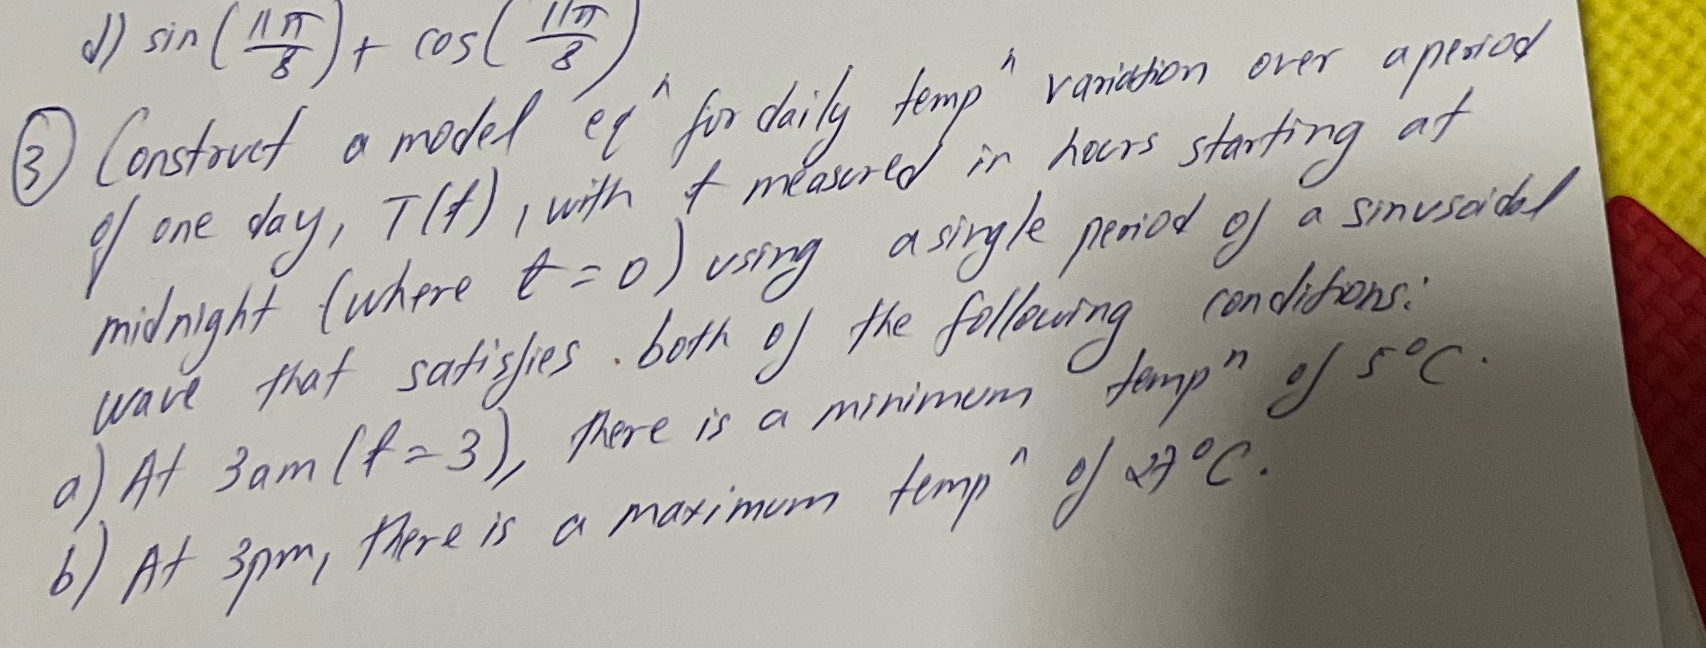 d) sin(11π/8) + cos(11π/8)
③ Construct a model eqⁿ for daily tempⁿ variation over a period
of one day, T(t), with t measured in hours starting at
midnight (where t = 0) using a single period of a sinusoidal
wave that satisfies both of the following conditions:
a) At 3am (t = 3), there is a minimum tempⁿ of 5°C.
b) At 3pm, there is a maximum tempⁿ of 27°C.